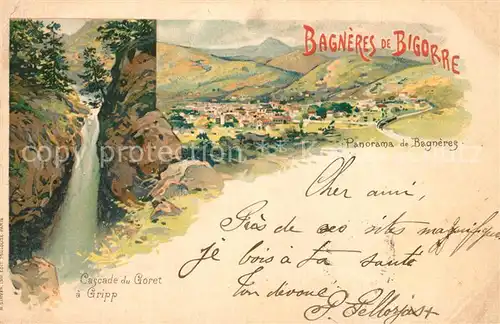 BAGNÈRES DE BIGORRE
Panorama de Bagnères
Cascade du Goret
à Gripp
Cher ami,
Près de ces sites magnifiques
je bois à ta santé
Ton dévoué